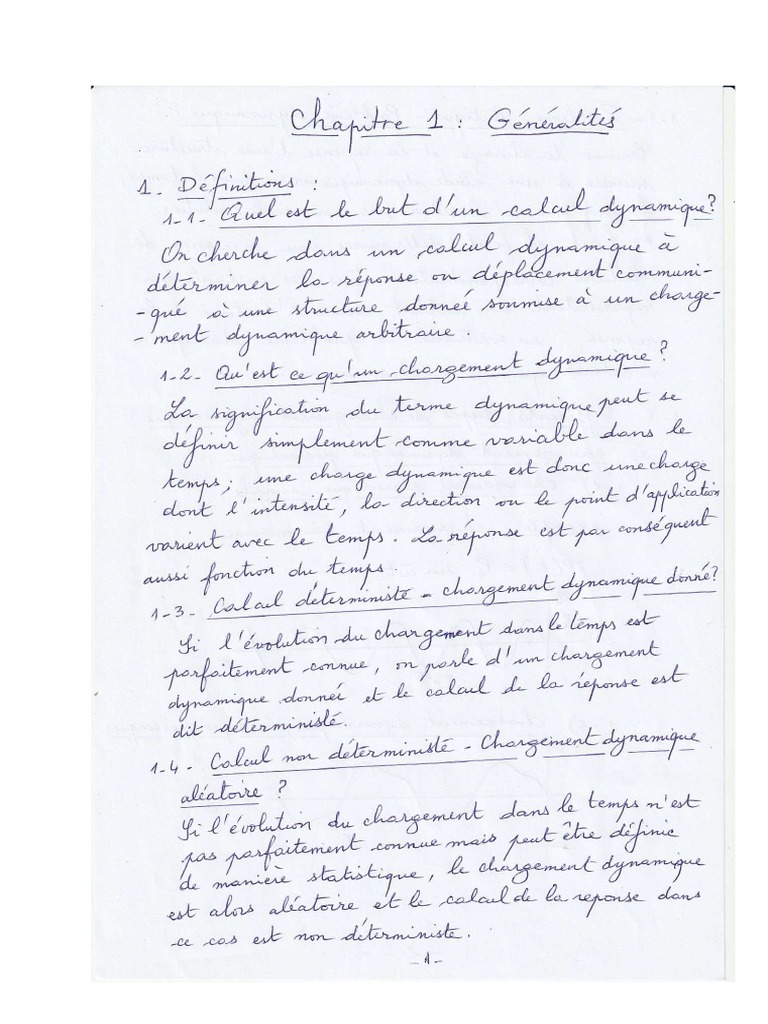 Chapitre 1 : Généralités
1- Définitions :
1-1- Quel est le but d'un calcul dynamique?
On cherche dans un calcul dynamique à
déterminer la réponse ou déplacement communi-
-qué à une structure donneé soumise à un charge-
-ment dynamique arbitraire.
1-2- Qu'est ce qu'un chargement dynamique ?
La signification du terme dynamique peut se
définir simplement comme variable dans le
temps; une charge dynamique est donc une charge
dont l'intensité, la direction ou le point d'application
varient avec le temps. La réponse est par conséquent
aussi fonction du temps.
1-3- Calcul déterministe - chargement dynamique donné?
Si l'évolution du chargement dans le temps est
parfaitement connue, on parle d'un chargement
dynamique donneé et le calcul de la réponse est
dit déterministé.
1-4- Calcul non déterministé - Chargement dynamique
aléatoire ?
Si l'évolution du chargement dans le temps n'est
pas parfaitement connue mais peut être définie
de manière statistique, le chargement dynamique
est alors aléatoire et le calcul de la reponse dans
ce cas est non déterministe.
-1-